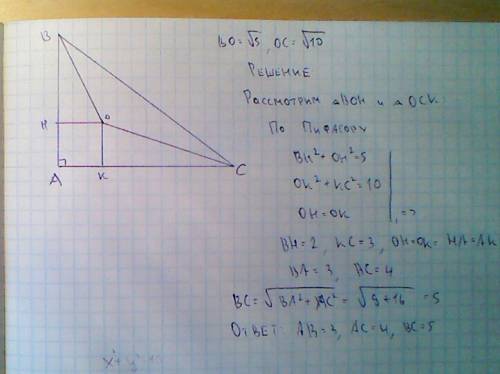 BO = √5, OC = √10
РЕШЕНИЕ
РАССМОТРИМ △BOH И △OCK.
ПО ПИФАГОРУ
BH² + OH² = 5
OK² + KC² = 10
OH = OK , =>
BH = 2, KC = 3, OH = OK = HA = AK
BA = 3, AC = 4
BC = √BA² + AC² = √9 + 16 = 5
ОТВЕТ: AB = 3, AC = 4, BC = 5
B
O
H
A
K
C